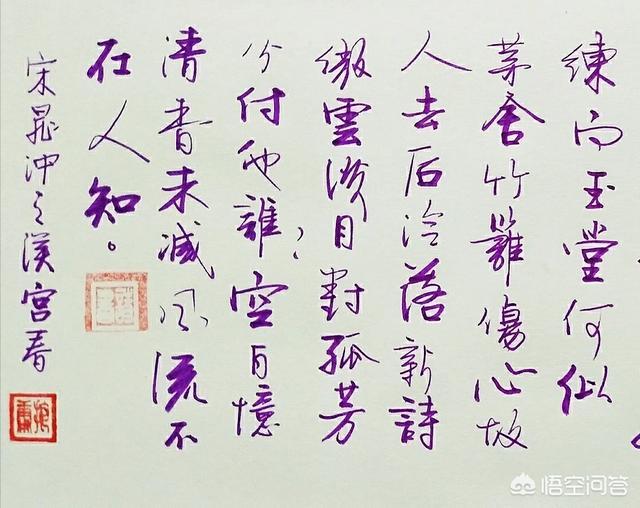 练而玉堂何似
茅舍竹籬傷心故
人去后冷落新詩
微雲淡月對孤芳
分付他誰？空自憶
清香未减风流不
在人知。
宋晁沖之漢宫春
悟空问答